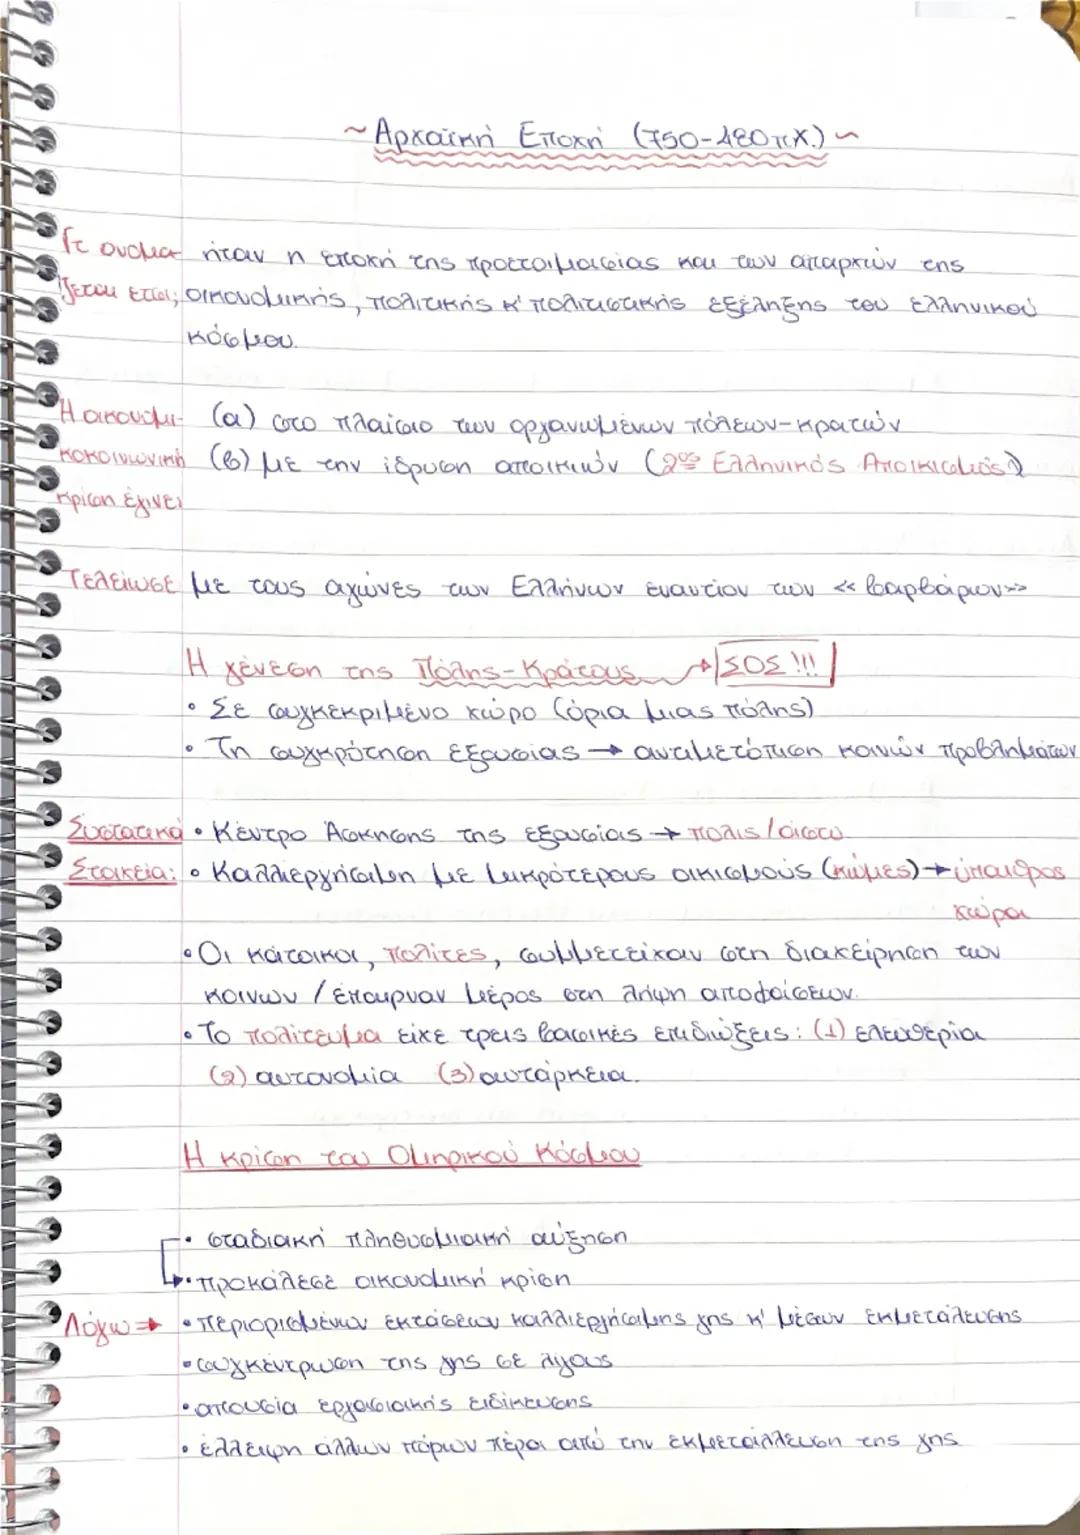 ~ Αρχαϊκή Εποχή (750-480 π.Χ.) ~
Γτ ονομά- ήταν η εποχή της προετοιμασίας και των απαρχών της
ζεται έτσι; οικονομικής, πολιτικής κ' πολιτιστικής εξέληξης του ελληνικού
κόσμου.
Η οικονομι- (α) στο πλαίσιο των οργανωμένων πόλεων-κρατών
κοκοινωνική (β) με την ίδρυση αποικιών (2ος Ελληνικός Αποικισμός)
κρίση έγινε
Τελείωσε με τους αγώνες των Ελλήνων εναντίον των << βαρβάρων>>
Η γένεση της Πόλης-Κράτους → ΣΟΣ !!!
• Σε συγκεκριμένο χώρο (όρια μιας πόλης)
• Τη συγκρότηση εξουσίας → αντιμετώπιση κοινών προβλημάτων
Συστατικά • Κέντρο Άσκησης της εξουσίας → πόλις / άστυ
Στοιχεία: • Καλλιεργήσιμη με μικρότερους οικισμούς (κώμες) → ύπαιθρος
χώρα
• Οι κάτοικοι, πολίτες, συμμετείχαν στη διαχείρηση των
κοινων / έπαιρναν μέρος στη λήψη αποφάσεων.
• Το πολίτευμα είχε τρεις βασικές επιδιώξεις: (1) ελευθερία
(2) αυτονομία (3) αυτάρκεια.
Η κρίση του Ομηρικού Κόσμου
• σταδιακή πληθυσμιακή αύξηση
• προκάλεσε οικονομική κρίση
Λόγω ⇒ • περιορισμένων εκτάσεων καλλιεργήσιμης γης κ' μέσων εκμετάλευσης
• συγκέντρωση της γης σε λίγους
• απουσία εργασιακής ειδίκευσης
• έλλειψη άλλων πόρων πέρα από την εκμετάλλευση της γης